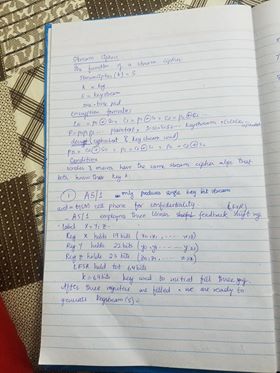 Stream Cipher
The function of a stream cipher
StreamCipher (K) = S
K = key
S = keystream
one-time pad
Encryption formula
C0 = P0 ⊕ S0, C1 = P1 ⊕ S1, C2 = P2 ⊕
P = P0P1P2 ... plaintext, S = S0S1S2 ... keystream
decrypt ciphertext & keystream used
P0 = C0 ⊕ S0, P1 = C1 ⊕ S1
Condition
sender & receiver have the same stream cipher algo that
both know the key K.
① A5/1 only produces single key bit stream
used in GSM cell phone for confidentiality.
A5/1 employs three linear feedback shift reg (LFSR)
label X, Y, Z.
Reg X holds 19 bits (x0, x1, ... x18)
Reg Y holds 22 bits (y0, y1, ... y21)
Reg Z holds 23 bits (z0, z1, ... z22)
LFSR hold tot 64 bits
K = 64 bits key used to initial fill three reg.
After three registers are filled we are ready to
generate keystream (S)